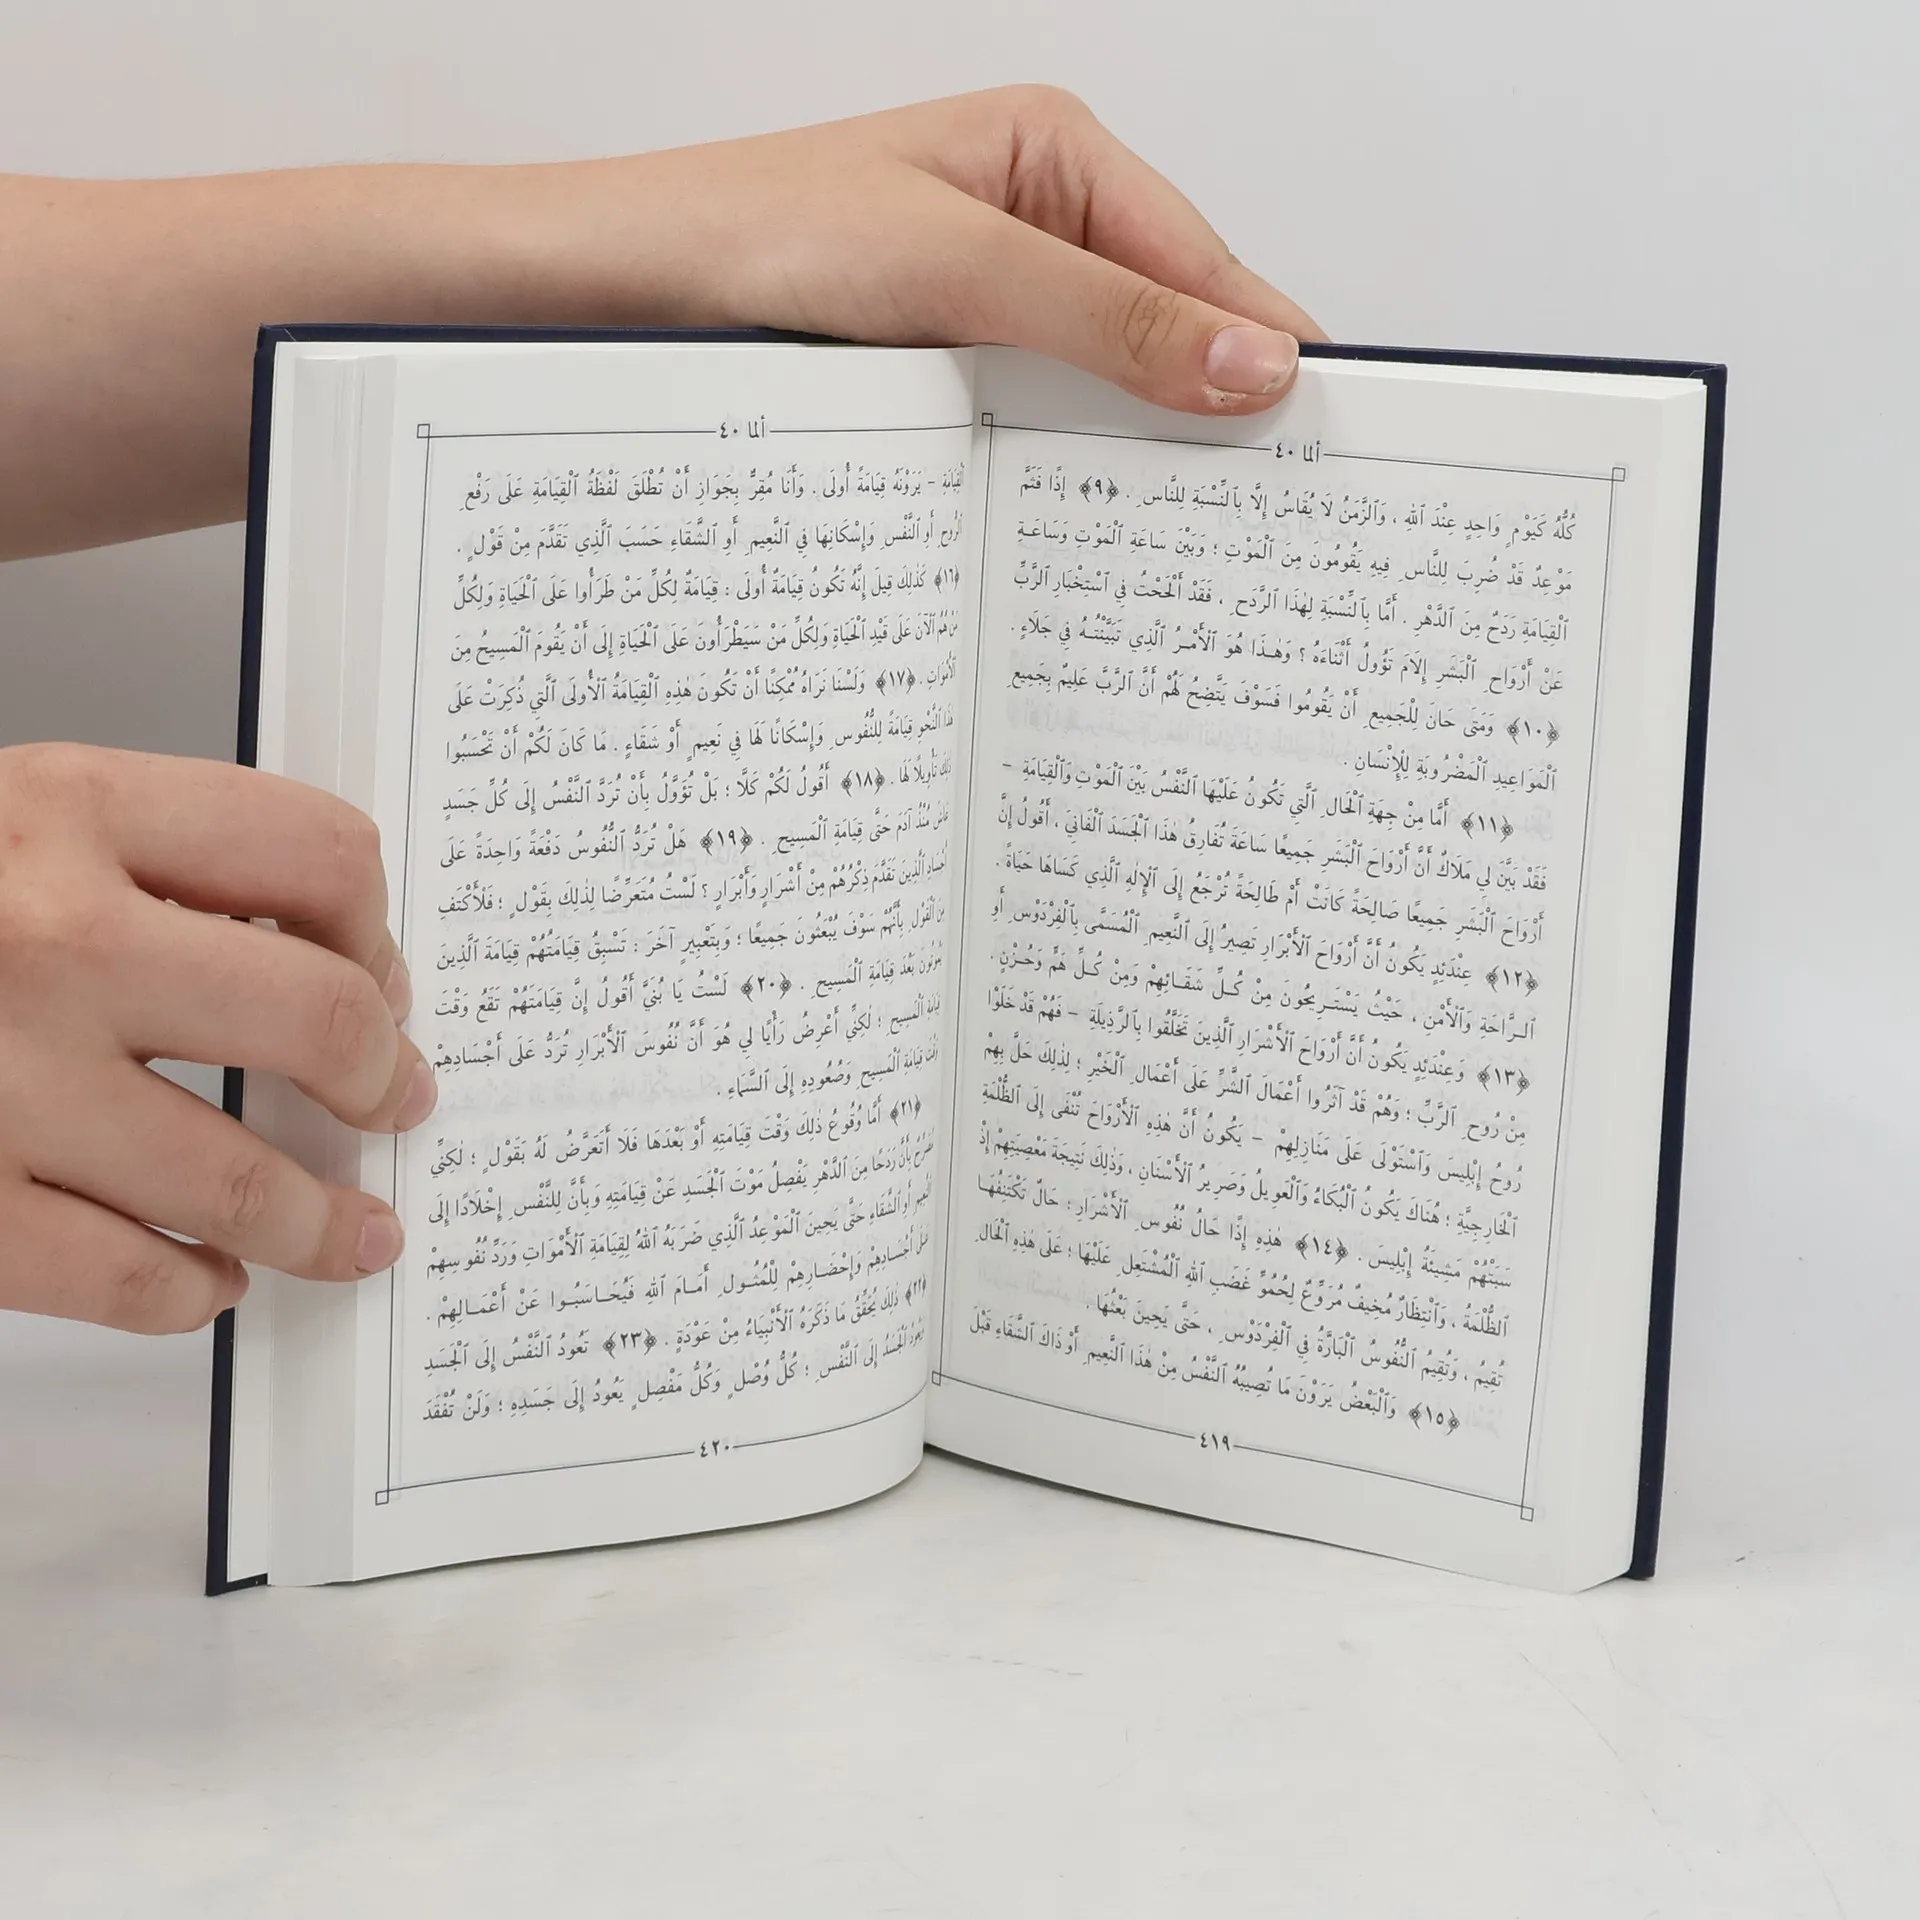 ألما ٤٠
كُلُّهُ كَيَوْمٍ وَاحِدٍ عِنْدَ ٱللهِ ، وَٱلزَّمَنُ لَا يُقَاسُ إِلَّا بِٱلنِّسْبَةِ لِلنَّاسِ . ﴿٩﴾ إِذًا فَثَمَّ
مَوْعِدٌ قَدْ ضُرِبَ لِلنَّاسِ فِيهِ يَقُومُونَ مِنَ ٱلْمَوْتِ ؛ وَبَيْنَ سَاعَةِ ٱلْمَوْتِ وَسَاعَةِ
ٱلْقِيَامَةِ رَدَحٌ مِنَ ٱلدَّهْرِ . أَمَّا بِٱلنِّسْبَةِ لِهٰذَا ٱلرَّدَحِ ، فَقَدْ أَلْحَحْتُ فِي ٱسْتِخْبَارِ ٱلرَّبِّ
عَنْ أَرْوَاحِ ٱلْبَشَرِ إِلَامَ تَؤُولُ أَثْنَاءَهُ ؟ وَهٰذَا هُوَ ٱلْأَمْرُ ٱلَّذِي تَبَيَّنْتُهُ فِي جَلَاءٍ .
﴿١٠﴾ وَمَتَى حَانَ لِلْجَمِيعِ أَنْ يَقُومُوا فَسَوْفَ يَتَّضِحُ لَهُمْ أَنَّ ٱلرَّبَّ عَلِيمٌ بِجَمِيعِ
ٱلْمَوَاعِيدِ ٱلْمَضْرُوبَةِ لِلْإِنْسَانِ .
﴿١١﴾ أَمَّا مِنْ جِهَةِ ٱلْحَالِ ٱلَّتِي تَكُونُ عَلَيْهَا ٱلنَّفْسُ بَيْنَ ٱلْمَوْتِ وَٱلْقِيَامَةِ –
فَقَدْ بَيَّنَ لِي مَلَاكٌ أَنَّ أَرْوَاحَ ٱلْبَشَرِ جَمِيعًا سَاعَةَ تُفَارِقُ هٰذَا ٱلْجَسَدَ ٱلْفَانِيَ ، أَقُولُ إِنَّ
أَرْوَاحَ ٱلْبَشَرِ جَمِيعًا صَالِحَةً كَانَتْ أَمْ طَالِحَةً تُرْجَعُ إِلَى ٱلْإِلٰهِ ٱلَّذِي كَسَاهَا حَيَاةً .
﴿١٢﴾ عِنْدَئِدٍ يَكُونُ أَنَّ أَرْوَاحَ ٱلْأَبْرَارِ تَصِيرُ إِلَى ٱلنَّعِيمِ ٱلْمُسَمَّى بِٱلْفِرْدَوْسِ أَوِ
ٱلرَّاحَةِ وَٱلْأَمْنِ ، حَيْثُ يَسْتَرِيحُونَ مِنْ كُلِّ شَقَائِهِمْ وَمِنْ كُلِّ هَمٍّ وَحُزْنٍ .
﴿١٣﴾ وَعِنْدَئِدٍ يَكُونُ أَنَّ أَرْوَاحَ ٱلْأَشْرَارِ ٱلَّذِينَ تَخَلَّقُوا بِٱلرَّذِيلَةِ – فَهُمْ قَدْ خَلَوْا
مِنْ رُوحِ ٱلرَّبِّ ؛ وَهُمْ قَدْ آثَرُوا أَعْمَالَ ٱلشَّرِّ عَلَى أَعْمَالِ ٱلْخَيْرِ ؛ لِذٰلِكَ حَلَّ بِهِمْ
رُوحُ إِبْلِيسَ وَٱسْتَوْلَى عَلَى مَنَازِلِهِمْ – يَكُونُ أَنَّ هٰذِهِ ٱلْأَرْوَاحَ تُنْفَى إِلَى ٱلظُّلْمَةِ
ٱلْخَارِجِيَّةِ ؛ هُنَاكَ يَكُونُ ٱلْبُكَاءُ وَٱلْعَوِيلُ وَصَرِيرُ ٱلْأَسْنَانِ ، وَذٰلِكَ نَتِيجَةَ مَعْصِيَتِهِمْ إِذْ
سَبَتْهُمْ مَشِيئَةُ إِبْلِيسَ . ﴿١٤﴾ هٰذِهِ إِذًا حَالُ نُفُوسِ ٱلْأَشْرَارِ : حَالٌ تَكْتَنِفُهَا
ٱلظُّلْمَةُ ، وَٱنْتِظَارٌ مُخِيفٌ مُرَوِّعٌ لِحُمُوِّ غَضَبِ ٱللهِ ٱلْمُشْتَعِلِ عَلَيْهَا ؛ عَلَى هٰذِهِ ٱلْحَالِ
تُقِيمُ ، وَتُقِيمُ ٱلنُّفُوسُ ٱلْبَارَّةُ فِي ٱلْفِرْدَوْسِ ، حَتَّى يَحِينَ بَعْثُهَا .
﴿١٥﴾ وَٱلْبَعْضُ يَرَوْنَ مَا تُصِيبُهُ ٱلنَّفْسُ مِنْ هٰذَا ٱلنَّعِيمِ أَوْ ذَاكَ ٱلشَّقَاءِ قَبْلَ
٤١٩
ألما ٤٠
ٱلْقِيَامَةِ – يَرَوْنَهُ قِيَامَةً أُولَى . وَأَنَا مُقِرٌّ بِجَوَازِ أَنْ تُطْلَقَ لَفْظَةُ ٱلْقِيَامَةِ عَلَى رَفْعِ
ٱلرُّوحِ أَوِ ٱلنَّفْسِ وَإِسْكَانِهَا فِي ٱلنَّعِيمِ أَوِ ٱلشَّقَاءِ حَسَبَ ٱلَّذِي تَقَدَّمَ مِنْ قَوْلٍ .
﴿١٦﴾ كَذٰلِكَ قِيلَ إِنَّهُ تَكُونُ قِيَامَةٌ أُولَى : قِيَامَةٌ لِكُلِّ مَنْ طَرَأُوا عَلَى ٱلْحَيَاةِ وَلِكُلِّ
مَنْ هُمُ ٱلْآنَ عَلَى قَيْدِ ٱلْحَيَاةِ وَلِكُلِّ مَنْ سَيَطْرَأُونَ عَلَى ٱلْحَيَاةِ إِلَى أَنْ يَقُومَ ٱلْمَسِيحُ مِنَ
ٱلْأَمْوَاتِ . ﴿١٧﴾ وَلَسْنَا نَرَاهُ مُمْكِنًا أَنْ تَكُونَ هٰذِهِ ٱلْقِيَامَةُ ٱلْأُولَى ٱلَّتِي ذُكِرَتْ عَلَى
هٰذَا ٱلنَّحْوِ قِيَامَةً لِلنُّفُوسِ وَإِسْكَانًا لَهَا فِي نَعِيمٍ أَوْ شَقَاءٍ . مَا كَانَ لَكُمْ أَنْ تَحْسَبُوا
ذٰلِكَ تَأْوِيلًا لَهَا . ﴿١٨﴾ أَقُولُ لَكُمْ كَلَّا ؛ بَلْ تُؤَوَّلُ بِأَنْ تُرَدَّ ٱلنَّفْسُ إِلَى كُلِّ جَسَدٍ
عَاشَ مُنْذُ آدَمَ حَتَّى قِيَامَةِ ٱلْمَسِيحِ . ﴿١٩﴾ هَلْ تُرَدُّ ٱلنُّفُوسُ دَفْعَةً وَاحِدَةً عَلَى
أَجْسَادِ ٱلَّذِينَ تَقَدَّمَ ذِكْرُهُمْ مِنْ أَشْرَارٍ وَأَبْرَارٍ ؟ لَسْتُ مُتَعَرِّضًا لِذٰلِكَ بِقَوْلٍ ؛ فَلْأَكْتَفِ
مِنَ ٱلْقَوْلِ بِأَنَّهُمْ سَوْفَ يُبْعَثُونَ جَمِيعًا ؛ وَبِتَعْبِيرٍ آخَرَ : تَسْبِقُ قِيَامَتُهُمْ قِيَامَةَ ٱلَّذِينَ
يَمُوتُونَ بَعْدَ قِيَامَةِ ٱلْمَسِيحِ . ﴿٢٠﴾ لَسْتُ يَا بُنَيَّ أَقُولُ إِنَّ قِيَامَتَهُمْ تَقَعُ وَقْتَ
قِيَامَةِ ٱلْمَسِيحِ ؛ لٰكِنِّي أَعْرِضُ رَأْيًا لِي هُوَ أَنَّ نُفُوسَ ٱلْأَبْرَارِ تُرَدُّ عَلَى أَجْسَادِهِمْ
وَقْتَ قِيَامَةِ ٱلْمَسِيحِ وَصُعُودِهِ إِلَى ٱلسَّمَاءِ .
﴿٢١﴾ أَمَّا وُقُوعُ ذٰلِكَ وَقْتَ قِيَامَتِهِ أَوْ بَعْدَهَا فَلَا أَتَعَرَّضُ لَهُ بَقَوْلٍ ؛ لٰكِنِّي
بِأَنَّ رَدَحًا مِنَ ٱلدَّهْرِ يَفْصِلُ مَوْتَ ٱلْجَسَدِ عَنْ قِيَامَتِهِ وَبِأَنَّ لِلنَّفْسِ إِخْلَادًا إِلَى
ٱلنَّعِيمِ أَوِ ٱلشَّقَاءِ حَتَّى يَحِينَ ٱلْمَوْعِدُ ٱلَّذِي ضَرَبَهُ ٱللهُ لِقِيَامَةِ ٱلْأَمْوَاتِ وَرَدِّ نُفُوسِهِمْ
عَلَى أَجْسَادِهِمْ وَإِحْضَارِهِمْ لِلْمُثُولِ أَمَامَ ٱللهِ فَيُحَاسَبُوا عَنْ أَعْمَالِهِمْ .
﴿٢٢﴾ ذٰلِكَ يُحَقِّقُ مَا ذَكَرَهُ ٱلْأَنْبِيَاءُ مِنْ عَوْدَةٍ . ﴿٢٣﴾ تَعُودُ ٱلنَّفْسُ إِلَى ٱلْجَسَدِ
وَيَعُودُ ٱلْجَسَدُ إِلَى ٱلنَّفْسِ ؛ كُلُّ وُصْلٍ وَكُلُّ مَفْصِلٍ يَعُودُ إِلَى جَسَدِهِ ؛ وَلَنْ تُفْقَدَ
٤٢٠